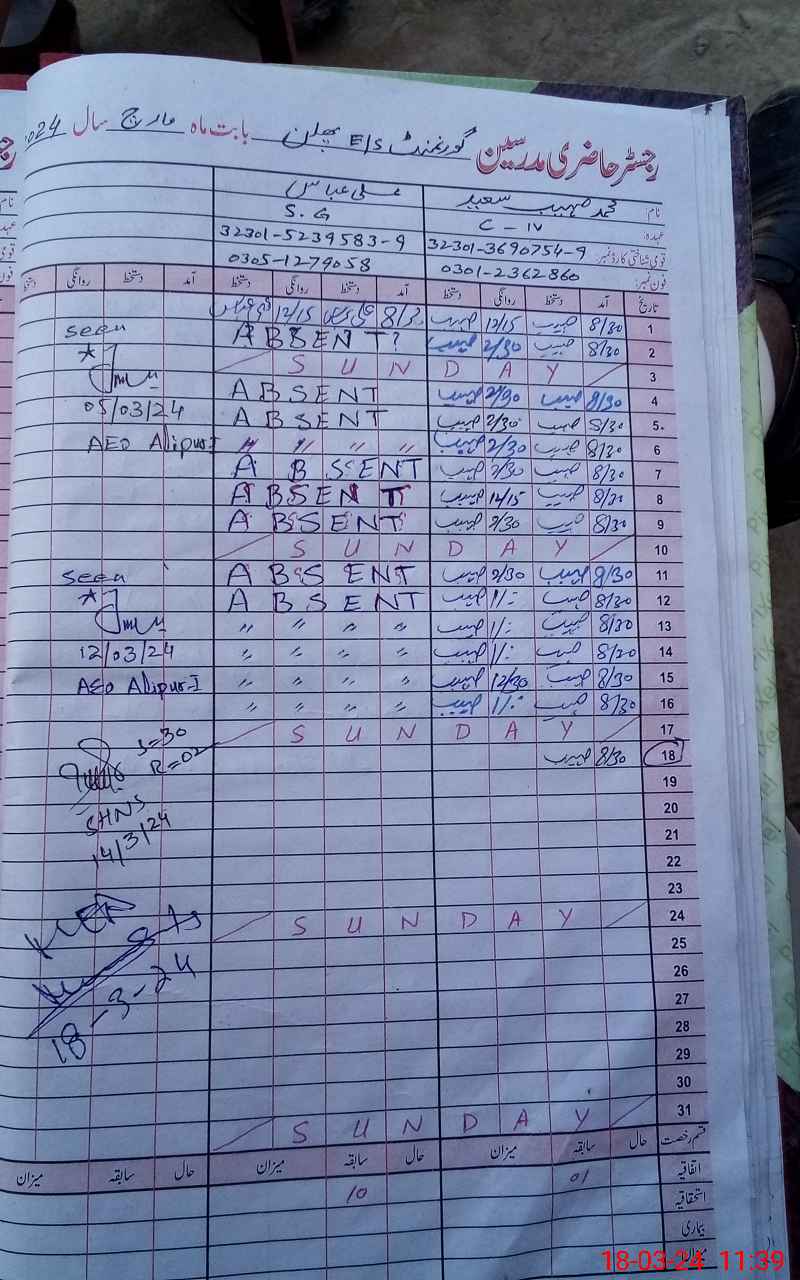 رجسٹر حاضری مدرسین گورنمنٹ E/S بابت ماہ مارچ سال 2024
نام: محمد صہیب سعید علی عباس
عہدہ: C - IV S.G
قومی شناختی کارڈ نمبر: 32301-3690754-9 32301-5239583-9
فون نمبر: 0301-2362860 0305-1279058
تاریخ آمد دستخط روانگی دستخط آمد دستخط روانگی دستخط آمد دستخط روانگی دستخط
1 8/30 صہیب 12/15 صہیب 8/30 12/15
2 8/30 صہیب 2/30 صہیب ABSENT? seen
3 SUNDAY
4 8/30 صہیب 2/30 صہیب ABSENT
5 8/30 صہیب 2/30 صہیب ABSENT 05/03/24
6 8/30 صہیب 2/30 صہیب " " " " AEO Alipur-I
7 8/30 صہیب 2/30 صہیب ABSENT
8 8/30 صہیب 12/15 صہیب ABSENT
9 8/30 صہیب 2/30 صہیب ABSENT
10 SUNDAY
11 8/30 صہیب 2/30 صہیب ABSENT seen
12 8/30 صہیب 1/: صہیب ABSENT
13 8/30 صہیب 1/: صہیب " " " "
14 8/30 صہیب 1/: صہیب " " " " 12/03/24
15 8/30 صہیب 12/30 صہیب " " " " AEO Alipur-I
16 8/30 صہیب 1/: صہیب " " " "
17 SUNDAY S=30
18 8/30 صہیب R=02
19
20 SHNS
21 14/3/24
22
23
24 SUNDAY
25
26
27
28 18-3-24
29
30
31 SUNDAY
قسم رخصت حال سابقہ میزان حال سابقہ میزان حال سابقہ میزان
اتفاقیہ 01
استحقاقیہ 10
بیماری
18-03-24 11:39